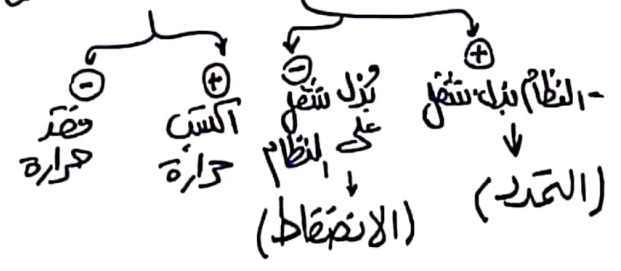 +
- النظام يبذل شغل
(التمدد)
-
بُذل شغل
على النظام
(الانضغاط)
+
اكتسب
حرارة
-
فقد
حرارة